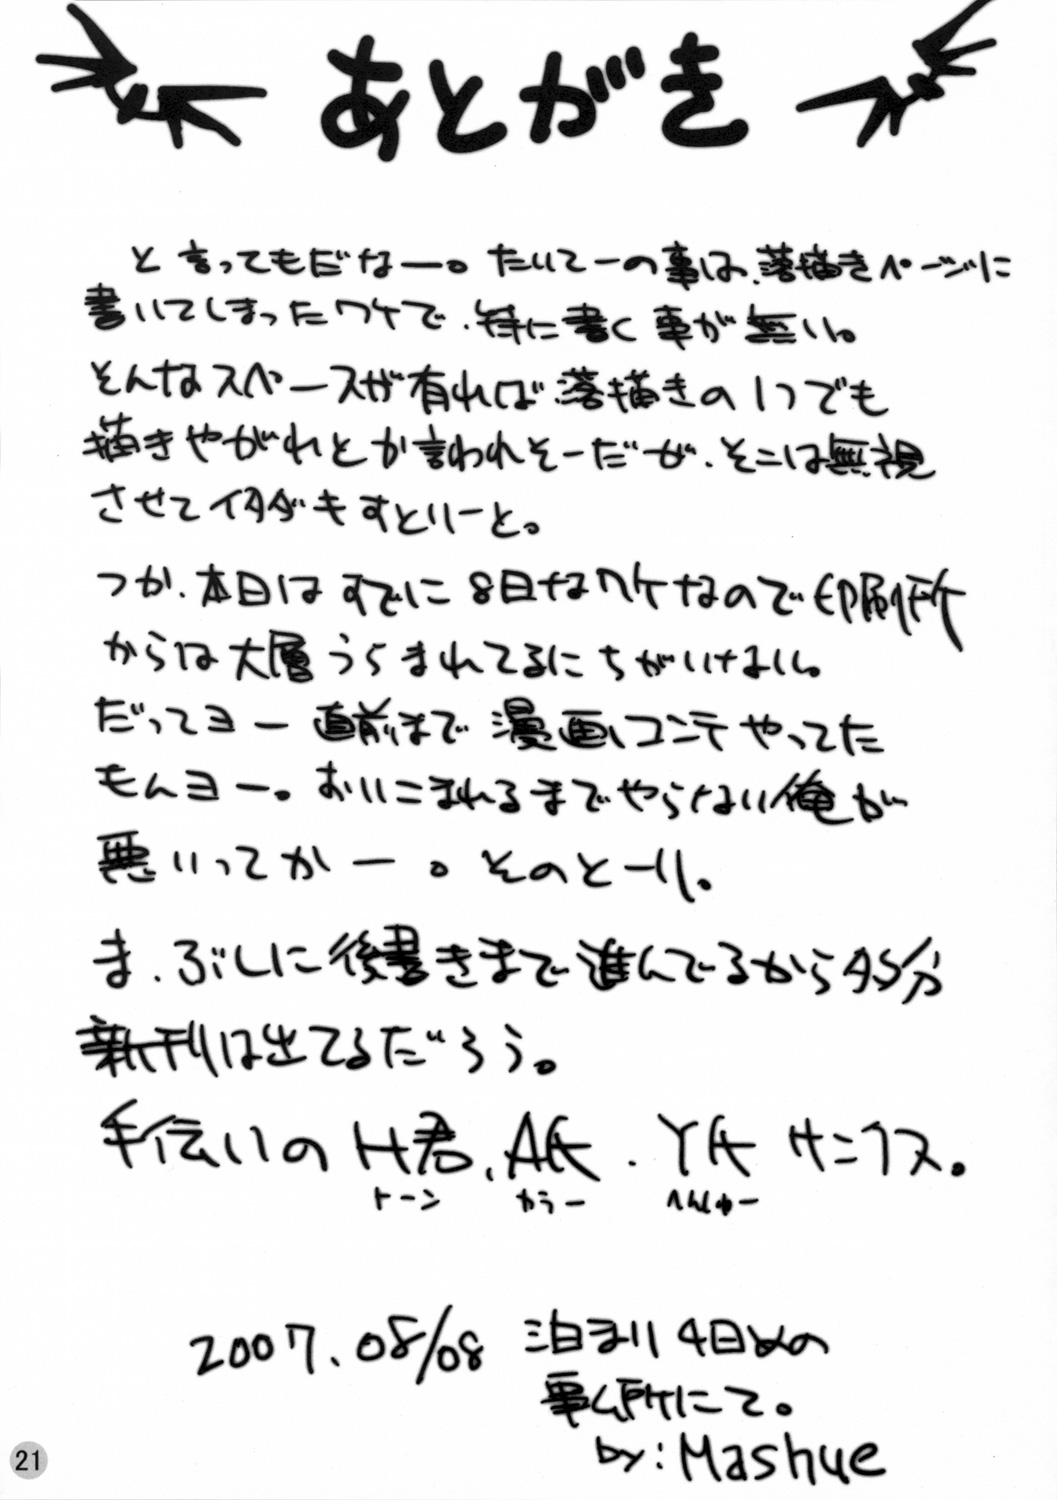 あとがき
と言ってもだなー。たいてーの事は、落描きページに
書いてしまったワケで、特に書く事が無い。
そんなスペースが有れば落描きの1つでも
描きやがれとか言われそーだが、そこは無視
させてイタダキますといーと。
つか、本日はすでに8日なワケなので印刷所
からは大層うらまれてるにちがいない。
だってヨー直前まで漫画コンテやってた
もんヨー。おいこまれるまでやらない俺が
悪いってかー。そのとーり。
ま、ぶじに後書きまで進んでるから多分
新刊は出てるだろう。
手伝いのH君、A氏、Y氏サンクス。
トーン カラー へんしゅー
2007.08/08 泊まり4日めの
事ム所にて。
by:Mashue
21